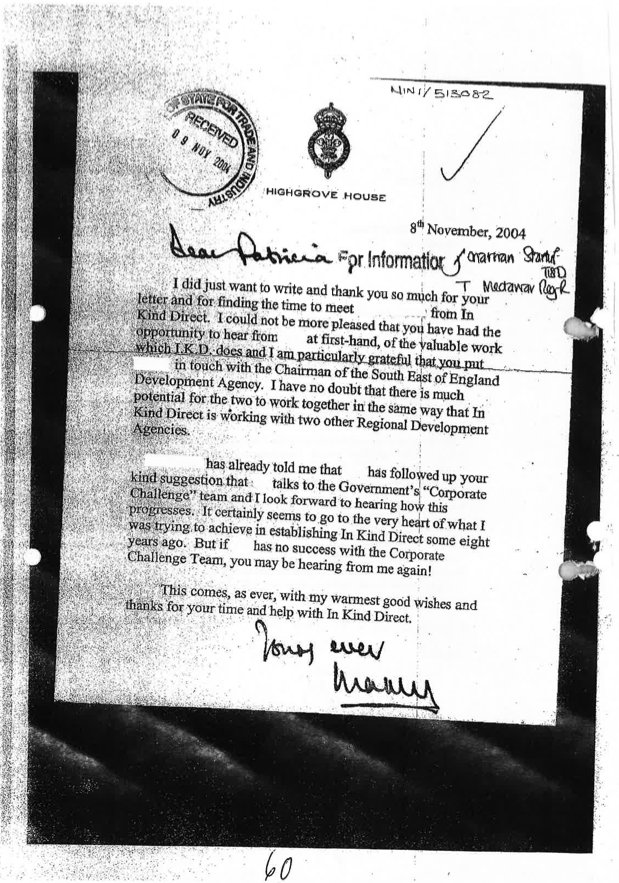 MIN1/513082
OF STATE FOR TRADE AND INDUSTRY
RECEIVED
09 NOV 2004
HIGHGROVE HOUSE
8th November, 2004
Dear Patricia
For Information
T Medawar
I did just want to write and thank you so much for your
letter and for finding the time to meet from In
Kind Direct. I could not be more pleased that you have had the
opportunity to hear from at first-hand, of the valuable work
which I.K.D. does and I am particularly grateful that you put
in touch with the Chairman of the South East of England
Development Agency. I have no doubt that there is much
potential for the two to work together in the same way that In
Kind Direct is working with two other Regional Development
Agencies.
has already told me that has followed up your
kind suggestion that talks to the Government's "Corporate
Challenge" team and I look forward to hearing how this
progresses. It certainly seems to go to the very heart of what I
was trying to achieve in establishing In Kind Direct some eight
years ago. But if has no success with the Corporate
Challenge Team, you may be hearing from me again!
This comes, as ever, with my warmest good wishes and
thanks for your time and help with In Kind Direct.
Yours ever
60